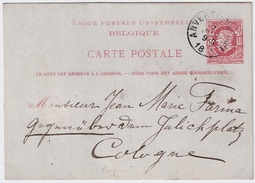 UNION POSTALE UNIVERSELLE
BELGIQUE
CARTE POSTALE
CE CÔTÉ EST RÉSERVÉ À L'ADRESSE. — ZIJDE VOOR HET ADRES VOORBEHOUDEN.
ANVERS
Monsieur Jean Marie Farina
Gegenüber dem Jülichplatz
Cologne